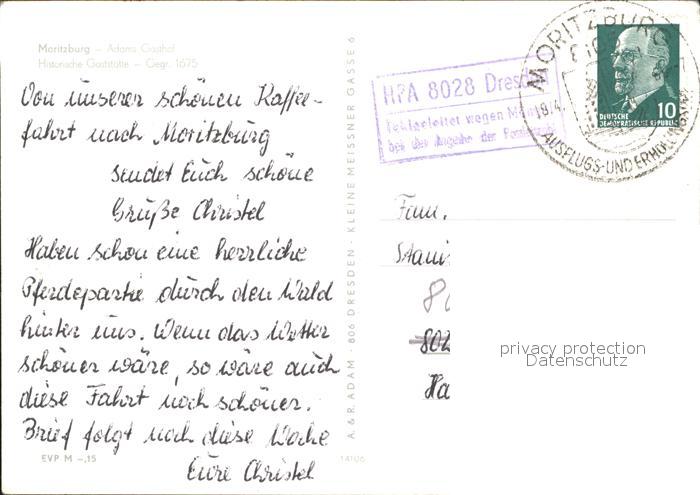 Moritzburg – Adams Gasthof
Historische Gaststätte – Gegr. 1675
Von unserer schönen Kaffee-
fahrt nach Moritzburg
sendet Euch schöne
Grüße Christel
Haben schon eine herrliche
Pferdepartie durch den Wald
hinter uns. Wenn das Wetter
schöner wäre, so wäre auch
diese Fahrt noch schöner.
Brief folgt noch diese Woche
Eure Christel
EVP M –,15
14106
A. & R. ADAM · 806 DRESDEN · KLEINE MEISSNER GASSE 6
HPA 8028 Dresde
Fehlgeleitet wegen
bei der Angabe der
MORITZBURG
AUSFLUGS- UND
DEUTSCHE
DEMOKRATISCHE REPUBLIK
10
Fam.
802
Ha
privacy protection
Datenschutz